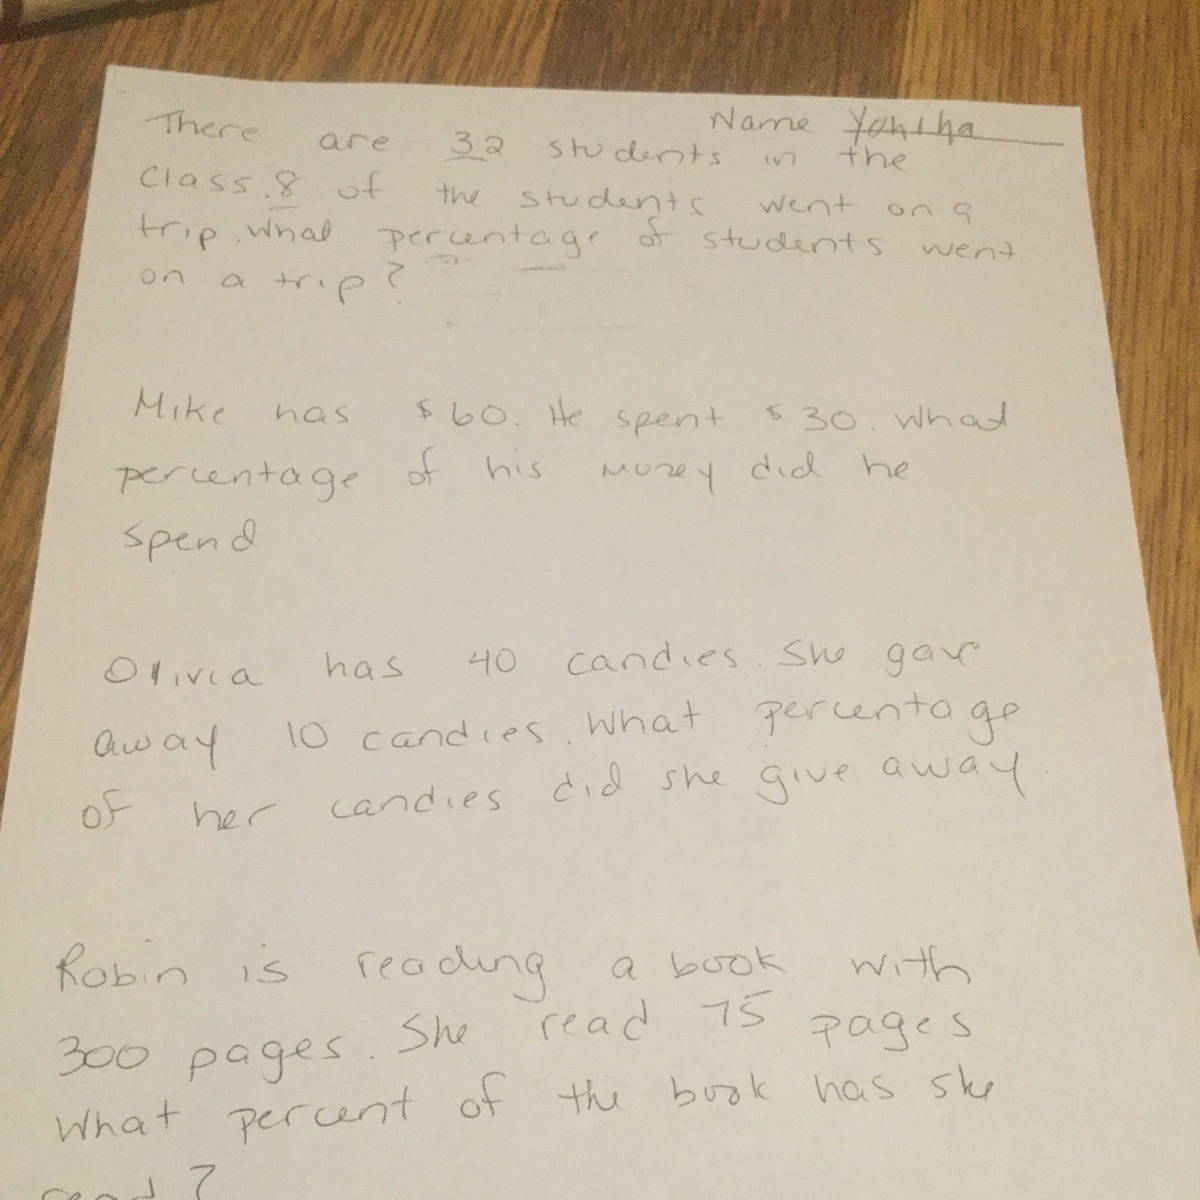 Name
There are 32 students in the
class. 8 of the students went on a
trip. What percentage of students went
on a trip?
Mike has $60. He spent $30. What
percentage of his money did he
spend
Olivia has 40 candies. She gave
away 10 candies. What percentage
of her candies did she give away
Robin is reading a book with
300 pages. She read 75 pages
What percent of the book has she
read?